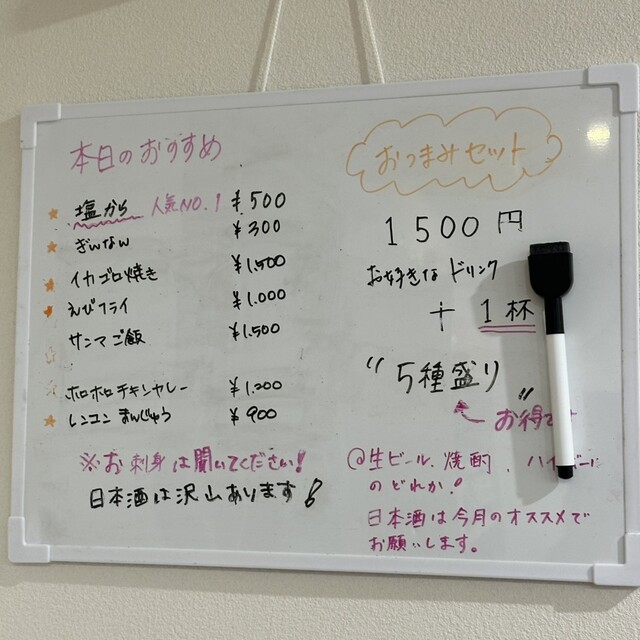 本日のおすすめ
塩から 人気NO.1 ¥500
ぎんなん ¥300
イカゴロ焼き ¥1,500
えびフライ ¥1.000
サンマご飯 ¥1.500
ホロホロチキンカレー ¥1.200
レンコンまんじゅう ¥900
※お刺身は聞いてください!
日本酒は沢山あります!
おつまみセット
1500円
お好きなドリンク
+1杯
"5種盛り"
お得で
@生ビール、焼酎、ハイ
のどれか!
日本酒は今月のオススメで
お願いします。